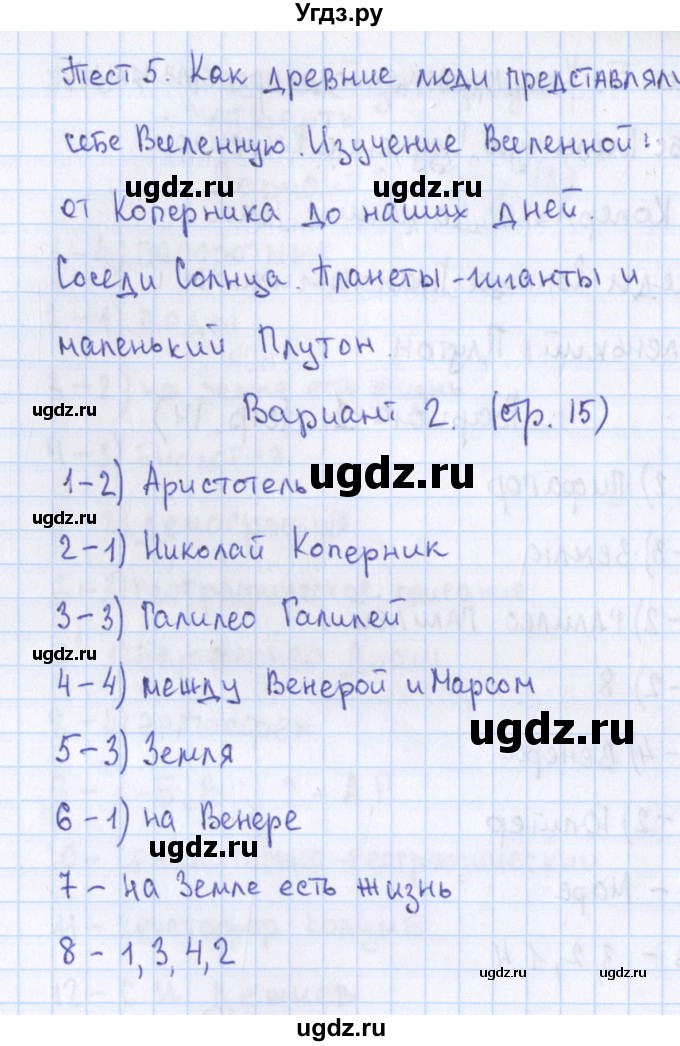 Угдз.ру
Тест 5. Как древние люди представляли
себе Вселенную. Изучение Вселенной:
ugdz.ru ugdz.ru
от Коперника до наших дней.
Соседи Солнца. Планеты-гиганты и
маленький Плутон.
ugdz.ru
Вариант 2. (стр. 15)
1-2) Аристотель ugdz.ru
ugdz.ru
2-1) Николай Коперник
3-3) Галилео Галилей
ugdz.ru
4-4) между Венерой и Марсом
ugdz.ru
5-3) Земля
6-1) на Венере
ugdz.ru
7 - на Земле есть жизнь
8 - 1, 3, 4, 2
ugdz.ru ugdz.ru
ugdz.ru